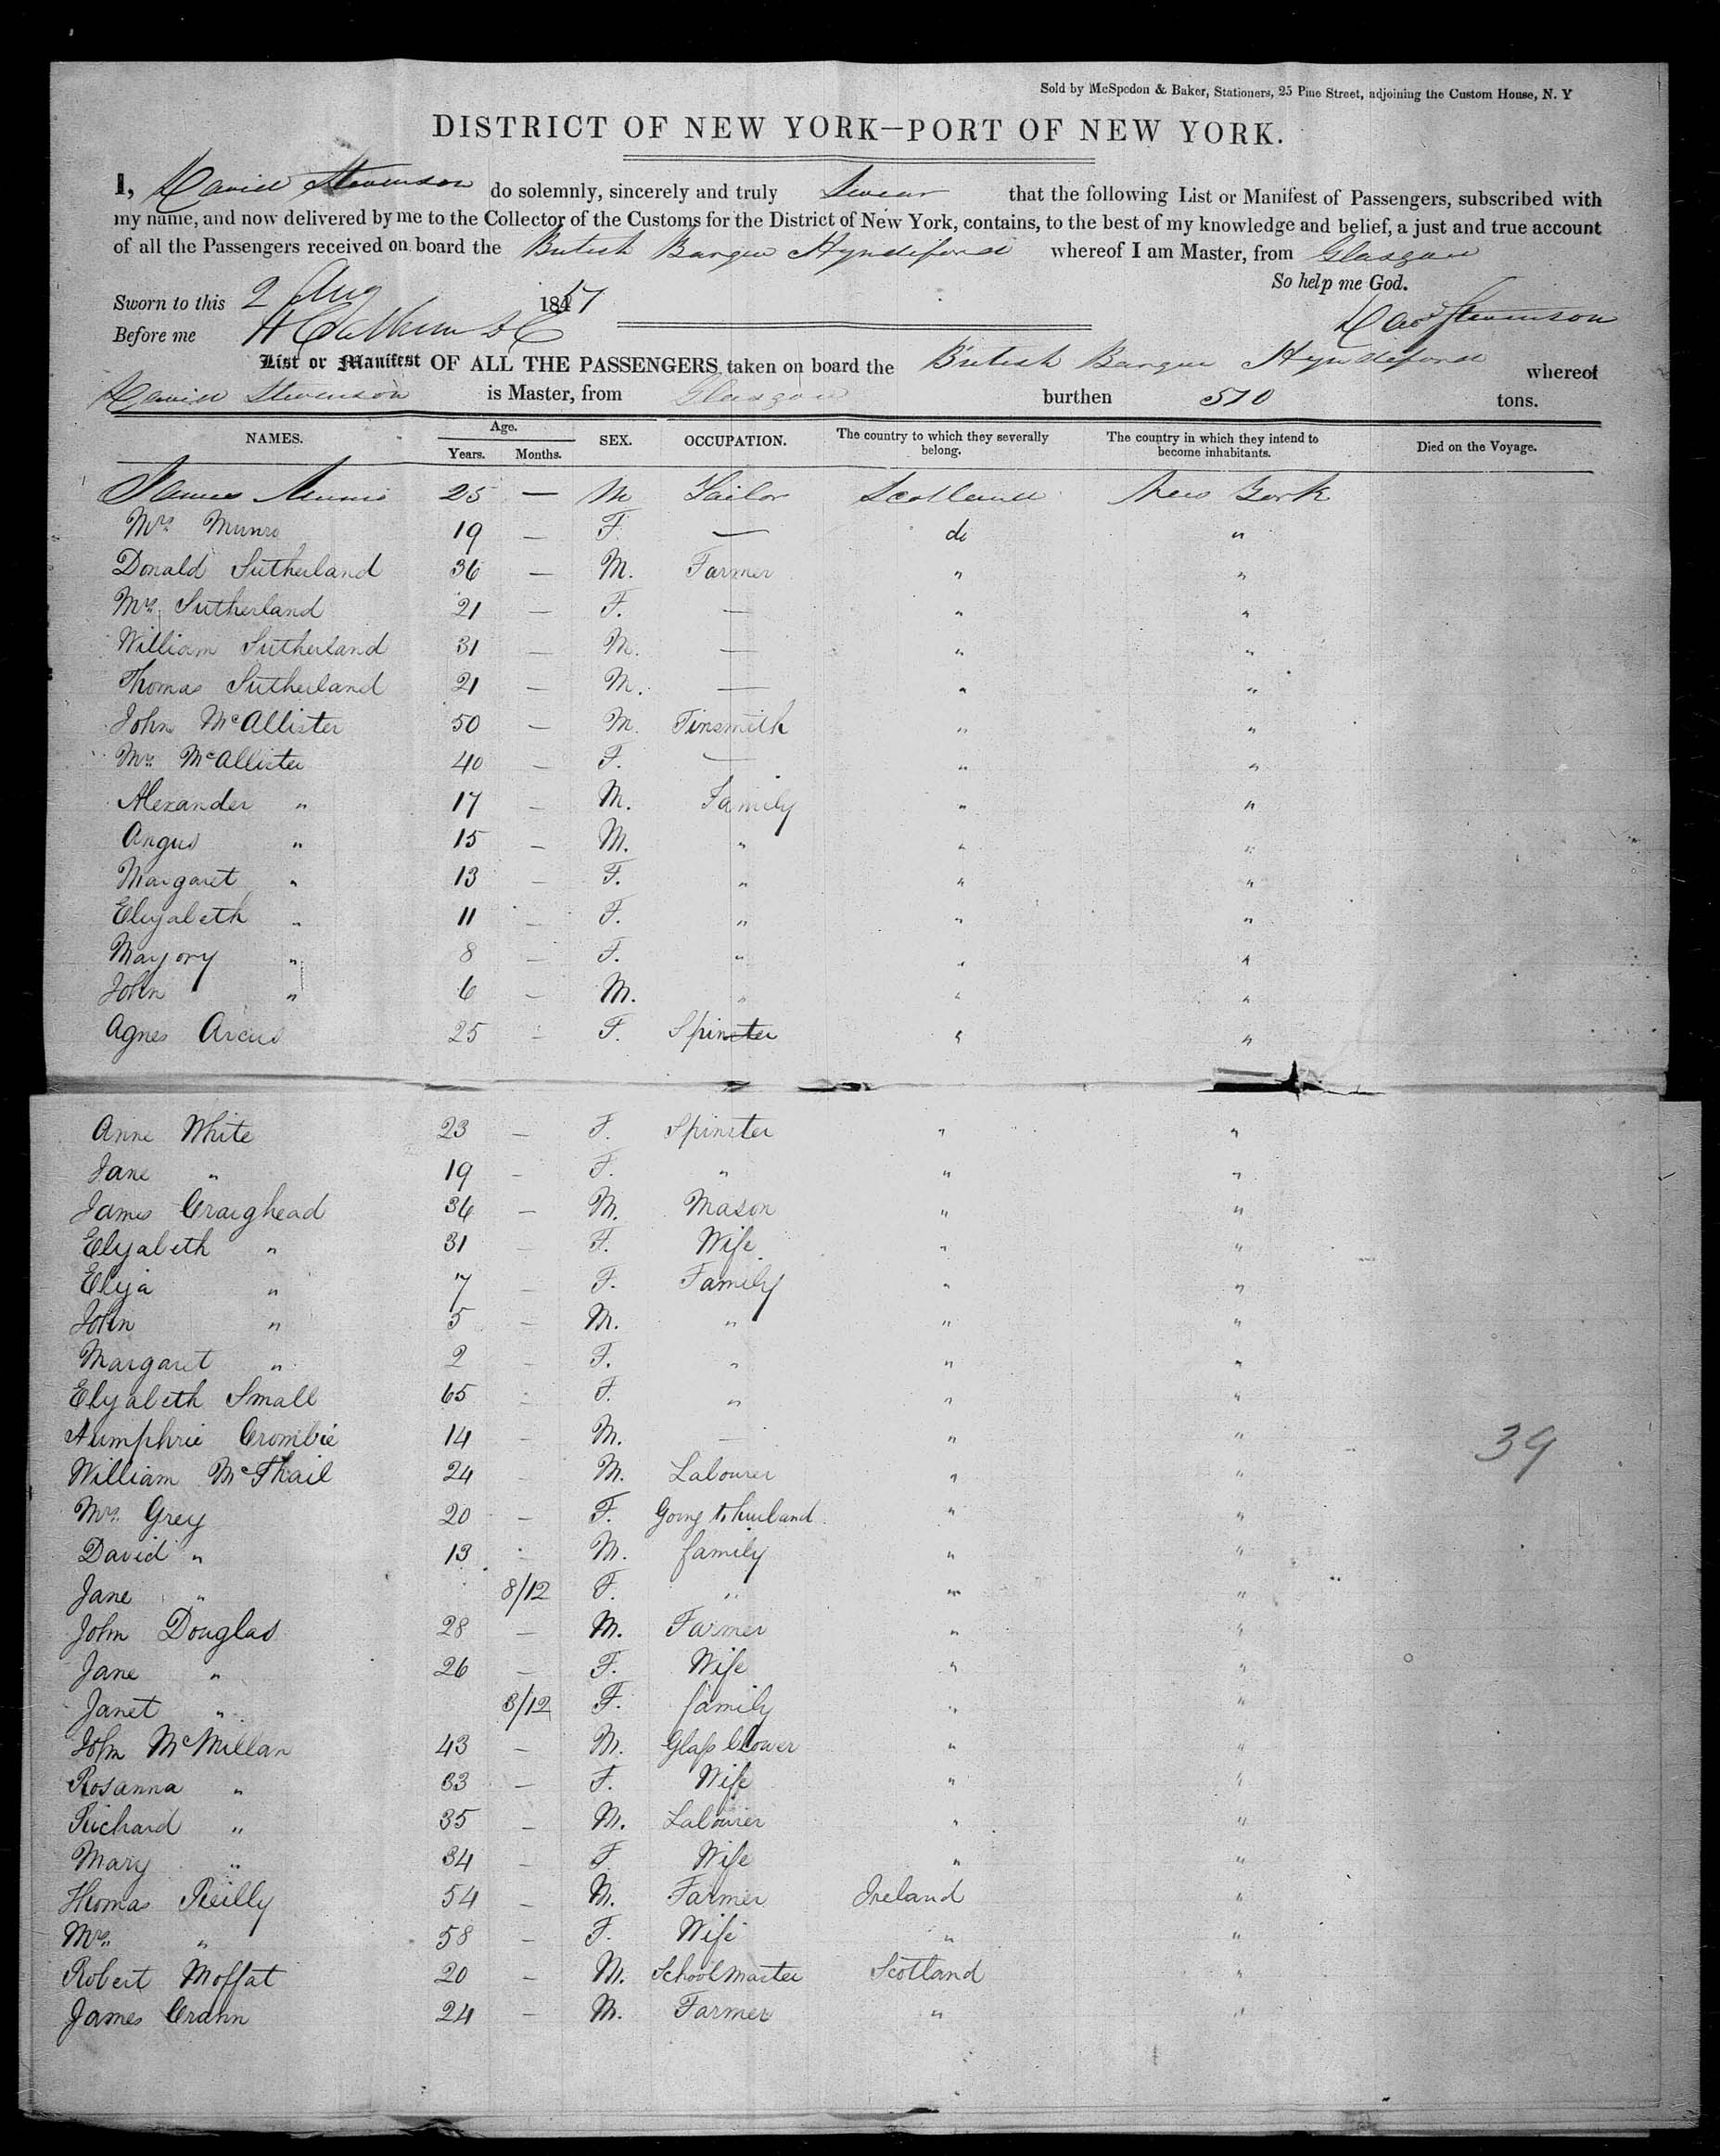 Sold by McSpedon & Baker, Stationers, 25 Pine Street, adjoining the Custom House, N. Y
DISTRICT OF NEW YORK—PORT OF NEW YORK.
I, David Stevenson do solemnly, sincerely and truly Swear that the following List or Manifest of Passengers, subscribed with
my name, and now delivered by me to the Collector of the Customs for the District of New York, contains, to the best of my knowledge and belief, a just and true account
of all the Passengers received on board the British Barque Hyndeford whereof I am Master, from Glasgow
So help me God.
Sworn to this 2 Aug 1857
Davd Stevenson
Before me
List or Manifest OF ALL THE PASSENGERS taken on board the British Barque Hyndeford whereof
David Stevenson is Master, from Glasgow burthen 510 tons.
NAMES. Age. Years. Months. SEX. OCCUPATION. The country to which they severally belong. The country in which they intend to become inhabitants. Died on the Voyage.
James Munro 25 — M Tailor Scotland New York
Mrs Munro 19 — F. — do "
Donald Sutherland 36 — M. Farmer " "
Mrs Sutherland 21 — F. — " "
William Sutherland 31 — M. — " "
Thomas Sutherland 21 — M. — " "
John McAllister 50 — M. Tinsmith " "
Mrs McAllister 40 — F. — " "
Alexander " 17 — M. Family " "
Angus " 15 — M. " " "
Margaret " 13 — F. " " "
Elizabeth " 11 — F. " " "
Marjory " 8 — F. " " "
John " 6 — M. " " "
Agnes Arcus 25 — F. Spinster " "
Anne White 23 — F. Spinster " "
Jane " 19 — F. " " "
James Craighead 36 — M. Mason " "
Elizabeth " 31 — F. Wife " "
Eliza " 7 — F. Family " "
John " 5 — M. " " "
Margaret " 2 — F. " " "
Elizabeth Small 65 — F. " " "
Humphrie Crombie 14 — M. — " "
39
William McPhail 24 — M. Labourer " "
Mrs Grey 20 — F. Going to husband " "
David " 13 — M. family " "
Jane " 8/12 F. " " "
John Douglas 28 — M. Farmer " "
Jane " 26 — F. Wife " "
Janet " 3/12 F. family " "
John McMillan 43 — M. Glass blower " "
Rosanna " 33 — F. Wife " "
Richard " 35 — M. Labourer " "
Mary " 34 — F Wife " "
Thomas Reilly 54 — M. Farmer Ireland "
Mrs " 58 — F. Wife " "
Robert Moffat 20 — M. Schoolmaster Scotland "
James Crann 24 — M. Farmer " "